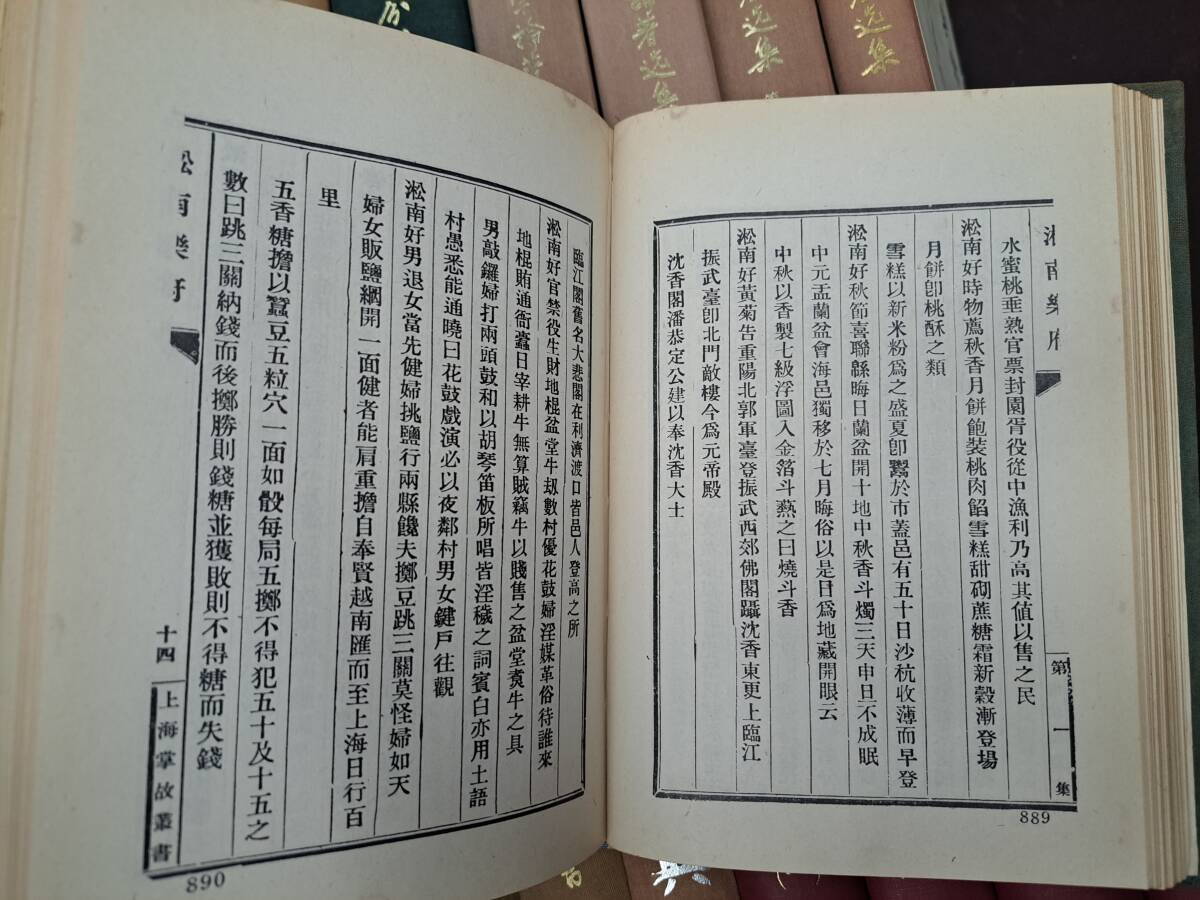 淞南樂府
第一集
水蜜桃垂熟官票封園胥役從中漁利乃高其值以售之民
淞南好時物薦秋香月餅飽裝桃肉餡雪糕甜砌蔗糖霜新穀漸登場
月餅卽桃酥之類
雪糕以新米粉爲之盛夏卽鬻於市蓋邑有五十日沙杭收薄而早登
淞南好秋節喜聯緜晦日蘭盆開十地中秋香斗燭三天申旦不成眠
中元盂蘭盆會海邑獨移於七月晦俗以是日爲地藏開眼云
中秋以香製七級浮圖入金箔斗爇之曰燒斗香
淞南好黃菊告重陽北郭軍臺登振武西郊佛閣躡沈香東更上臨江
振武臺卽北門敵樓今爲元帝殿
沈香閣潘恭定公建以奉沈香大士
889
臨江閣舊名大悲閣在利濟渡口皆邑人登高之所
淞南好官禁役生財地棍盆堂牛刼數村優花鼓婦淫媒革俗待誰來
地棍賄通衙蠹日宰耕牛無算賊竊牛以賤售之盆堂煑牛之具
男敲鑼婦打兩頭鼓和以胡琴笛板所唱皆淫穢之詞賓白亦用土語
村愚悉能通曉曰花鼓戲演必以夜鄰村男女鍵戶往觀
淞南好男退女當先健婦挑鹽行兩縣饞夫擲豆跳三關莫怪婦如天
婦女販鹽綱開一面健者能肩重擔自奉賢越南匯而至上海日行百
里
五香糖擔以蠶豆五粒穴一面如骰每局五擲不得犯五十及十五之
數曰跳三關納錢而後擲勝則錢糖並獲敗則不得糖而失錢
淞南樂府
十四
上海掌故叢書
890
選集
著選集
選集